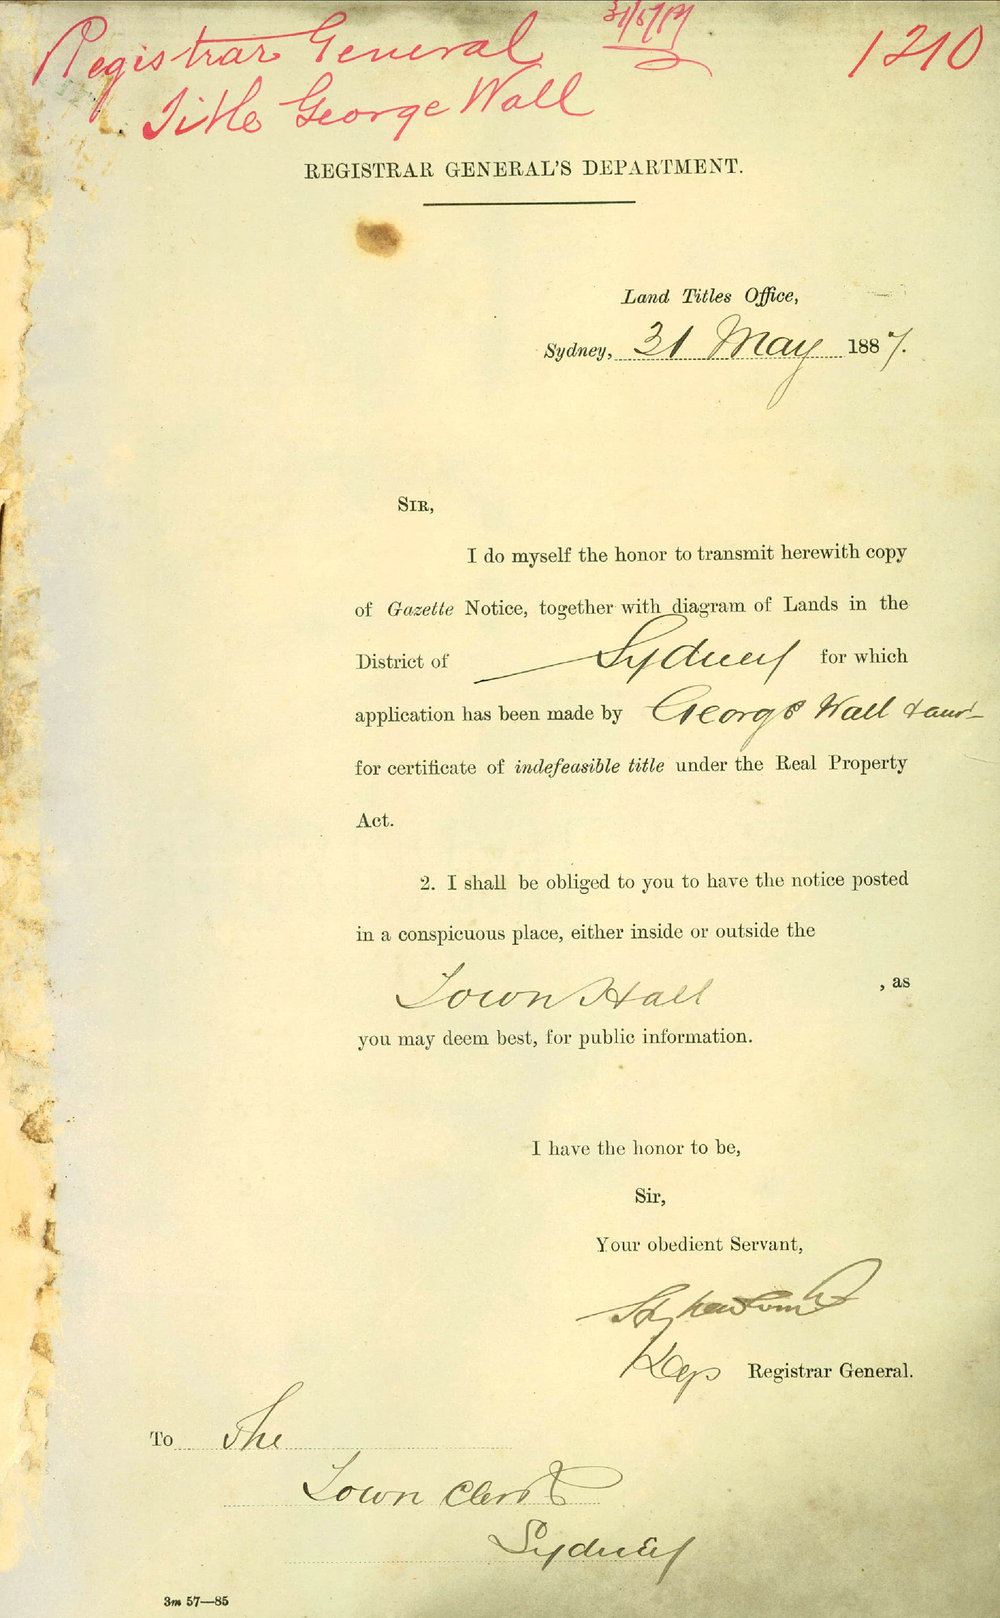 Registrar General 31/5/87
1210
Title George Wall
REGISTRAR GENERAL'S DEPARTMENT.
Land Titles Office,
Sydney, 31 May 1887.
SIR,
I do myself the honor to transmit herewith copy
of Gazette Notice, together with diagram of Lands in the
District of Sydney for which
application has been made by George Wall & anr
for certificate of indefeasible title under the Real Property
Act.
2. I shall be obliged to you to have the notice posted
in a conspicuous place, either inside or outside the
Town Hall , as
you may deem best, for public information.
I have the honor to be,
Sir,
Your obedient Servant,
Dep Registrar General.
To The
Town Clerk
Sydney
3m 57—85